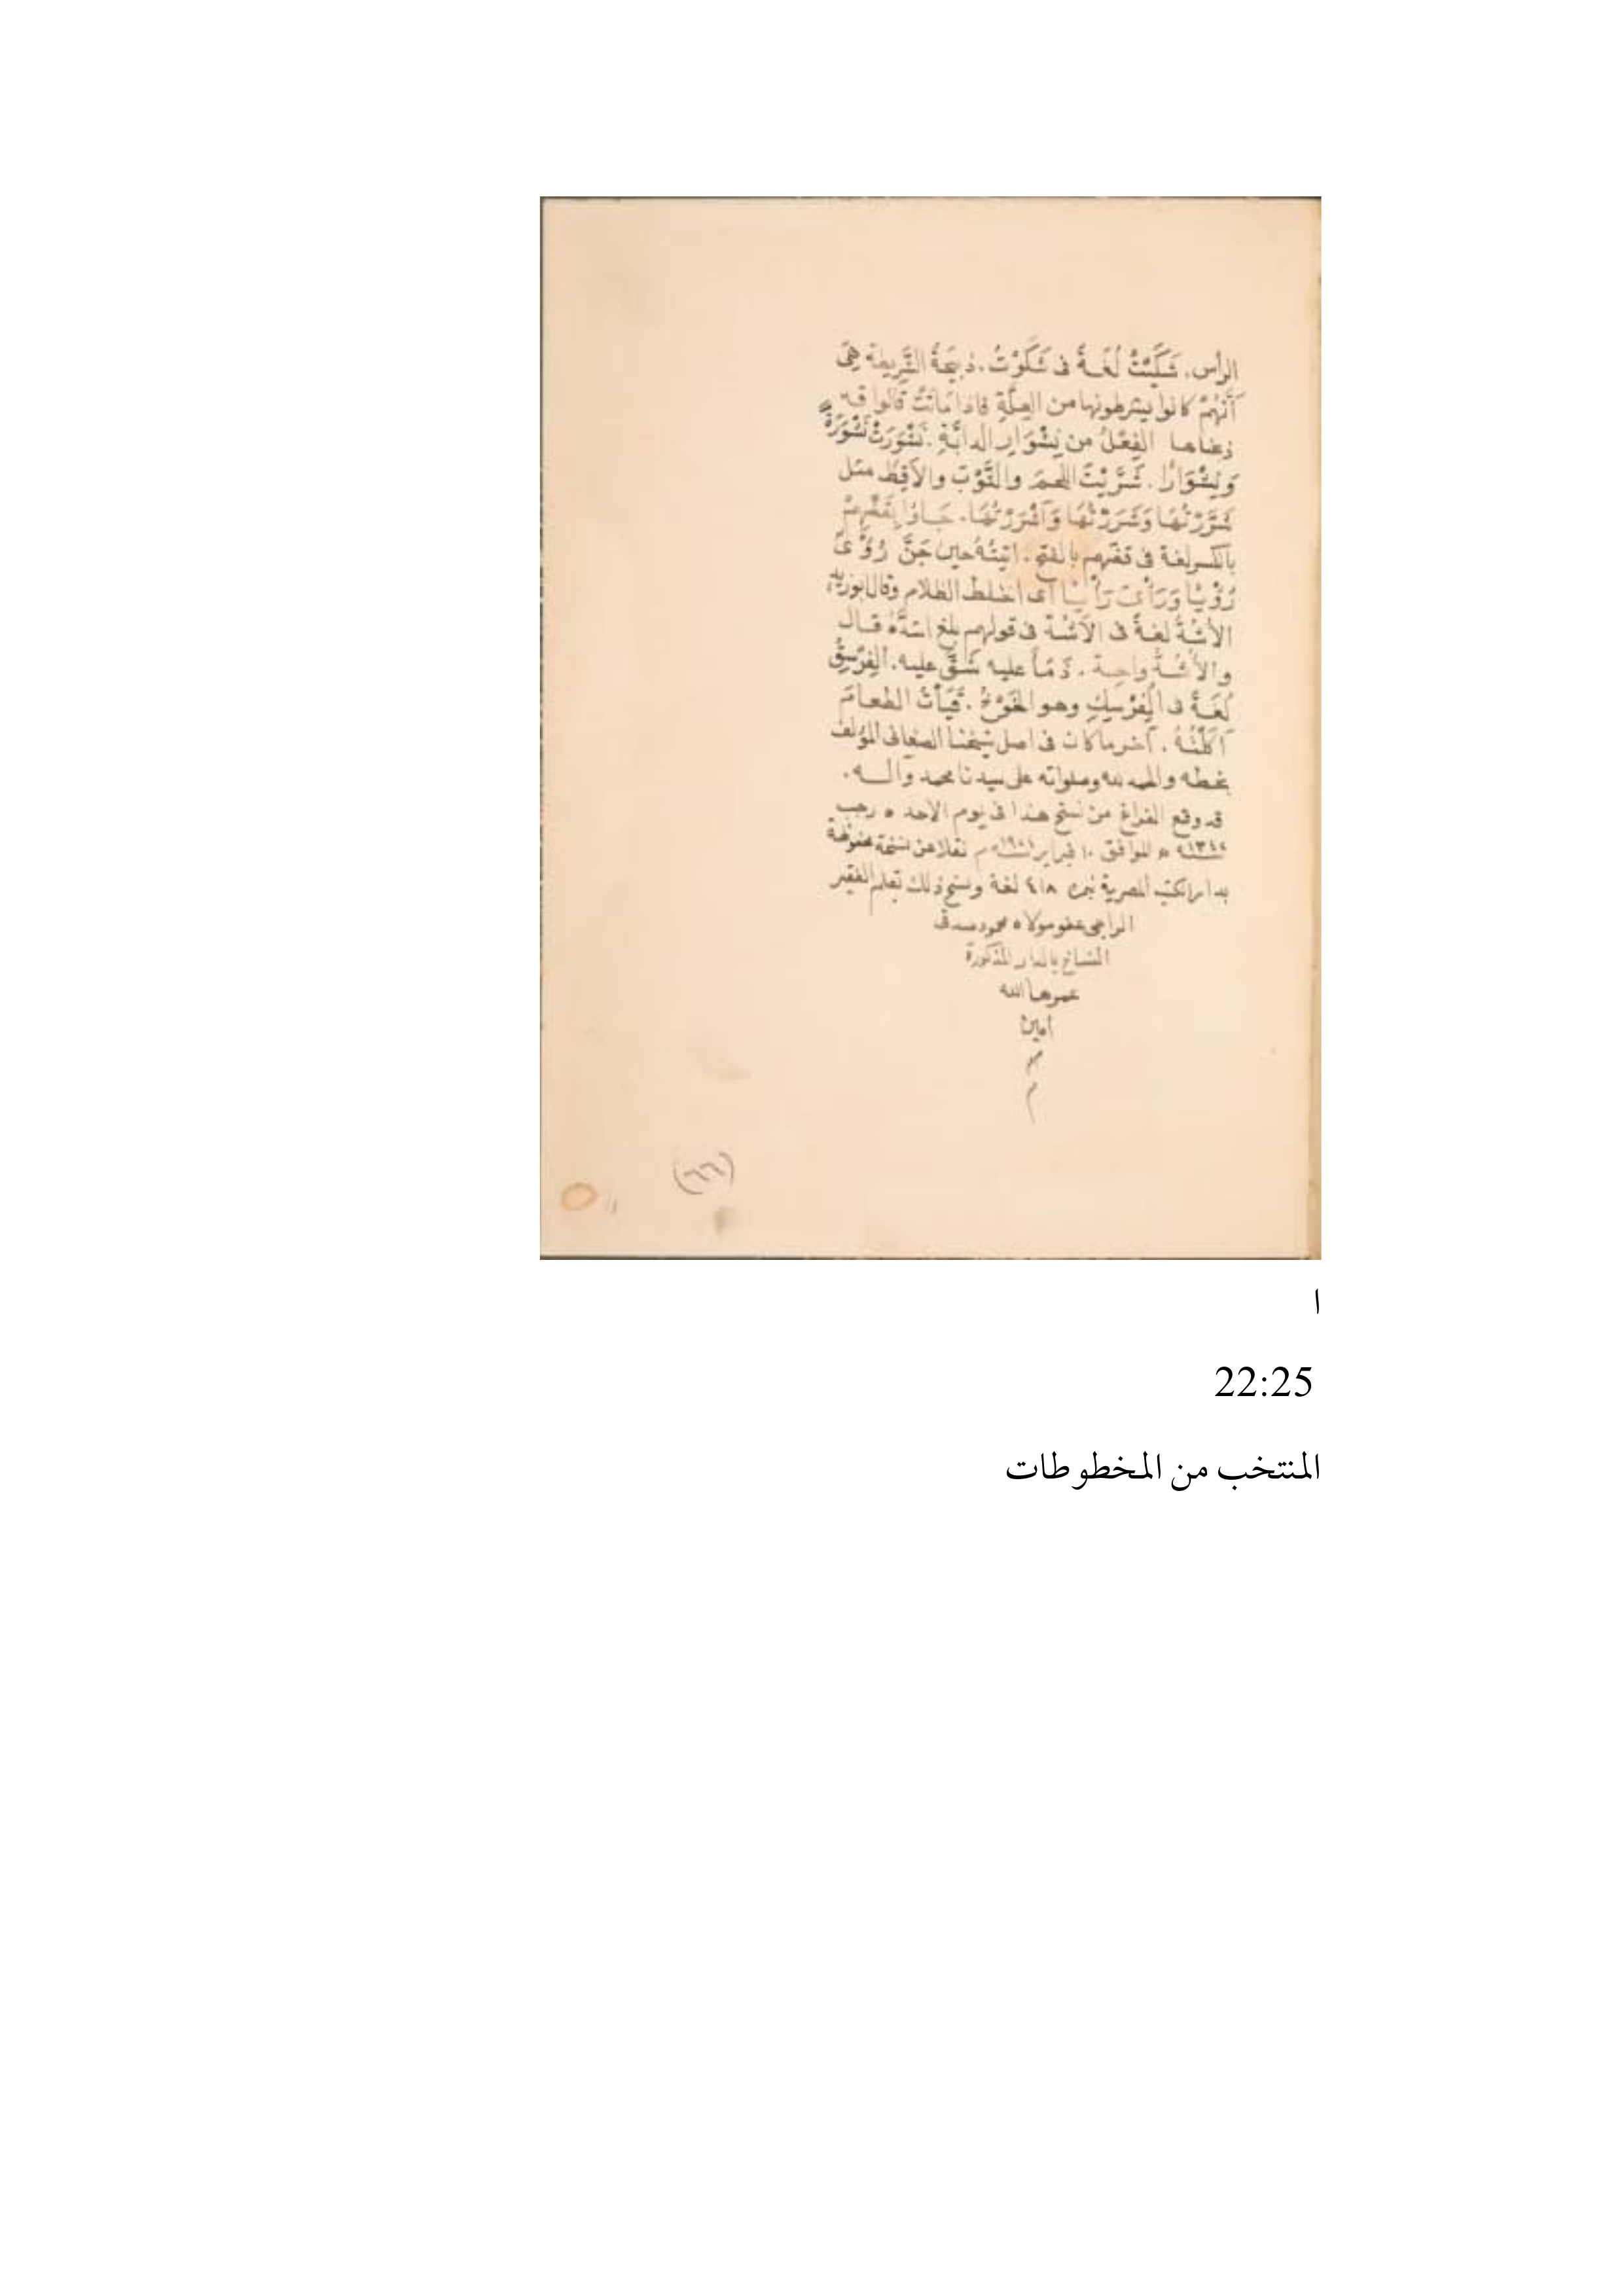 الرأس. شَكَيْتُ لُغَةً فى شَكَوْتُ. ذبيحَةُ الشَّرِيطَة هِىَ
أَنَّهُمْ كانوا يشرطونها من العِلَّةِ فاذا مَاتَتْ قالوا قد
ذبحناها الفِعْلُ من نِشْوَارِ الدابَّةِ. نَشْوَرَتْ نَشْوَرَةً
وَنِشْوَارًا. شَرَّيْتُ اللحمَ والثَّوْبَ والأَقِطَ مثل
شَرَّرْتُهَا وَشَرَرْتُهَا وَأَشْرَرْتُهَا. جَاؤا
بالكسر لغة فى بالفتح. اتيتُهُ حين جَنَّ رُؤْىٌ
رُؤْيًا وَرَأْىٌ رَأْيًا أى اختلط الظلام وقال ابو زيد
لغةً فى فى قولهم بلغ اشدَّهُ قال
واحدة. ذَمَأ عليه شَقَّ عليه. الفِرْسِقُ
لُغَةً فى الفِرْسِكِ وهو الخَوْخُ. الطعامَ
أَكَلْتُهُ. آخر ما كان فى اصل شيخنا الصغانى المؤلف
بخطه والحمد لله وصلواته على سيدنا محمد وآله.
قد وقع الفراغ من نسخ هذا فى يوم الاحد ٥ رجب
الموافق ١٠ فبراير م نقلا عن نسخة محفوظة
بدار الكتب المصرية نمرة ٤١٨ لغة ونسخ ذلك بقلم الفقير
الراجى عفو مولاه محمود صدقى
النساخ بالدار المذكورة
عمرها الله
أمين
م
(٦٦)
ا
22:25
المنتخب من المخطوطات